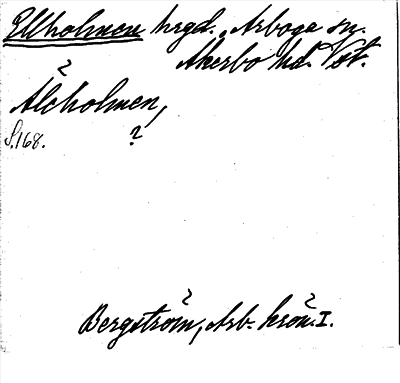 Ellholmen hrgd. Arboga sn.
Åkerbo hd. Vst.
Älcholmen,
S. 168. ?
Bergström, Arb. krön. I.